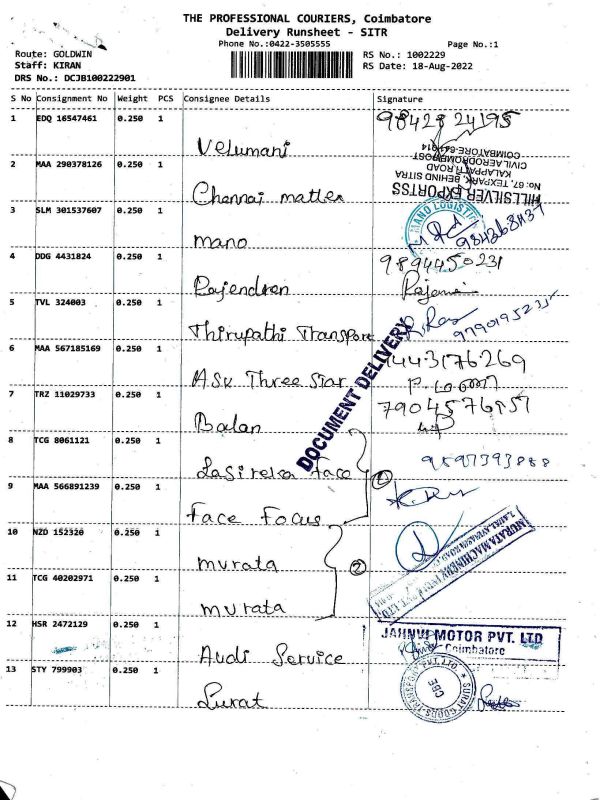 THE PROFESSIONAL COURIERS, Coimbatore
Delivery Runsheet - SITR
Phone No.:0422-3505555
Page No.:1
Route: GOLDWIN
RS No.: 1002229
Staff: KIRAN
RS Date: 18-Aug-2022
DRS No.: DCJB100222901
S No Consignment No Weight PCS Consignee Details Signature
1 EDQ 16547461 0.250 1 Velumani 98428 24195
2 MAA 290378126 0.250 1 Chennai matter
HILLSILVER EXPORTSS
No: 67, TEXPARK, BEHIND SITRA
KALAPPATTI ROAD
CIVIL AERODROME POST
COIMBATORE-641 014
3 SLM 301537607 0.250 1 mano
MANO LOGISTIC
4 DDG 4431824 0.250 1 Rajendren 9894450231
5 TVL 324003 0.250 1 Thirupathi Transport 9790195235
6 MAA 567185169 0.250 1 Ask Three Star 9443176269
DOCUMENT DELIVERY
7 TRZ 11029733 0.250 1 Balan
8 TCG 8061121 0.250 1 Face 9597393888
9 MAA 566891239 0.250 1 Face Focus
10 NZD 152320 0.250 1 murata
2
11 TCG 40202971 0.250 1 murata
MURATA MACHINERY INDIA PVT. LTD
12 HSR 2472129 0.250 1 Audi Service
JAHNVI MOTOR PVT. LTD
Coimbatore
13 STY 799903 0.250 1 Surat
SURAT GOODS TRANSPORT PVT. LTD.
CBE